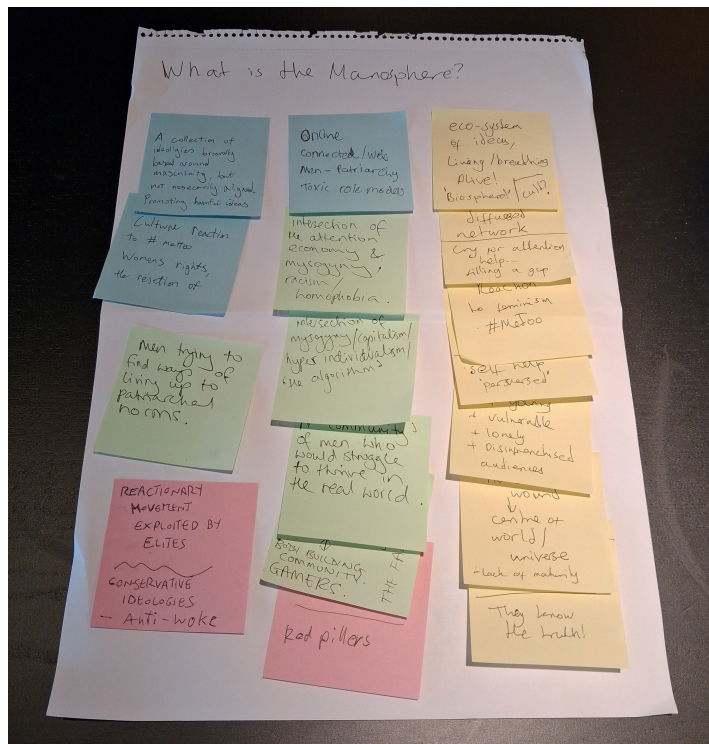 What is the Manosphere?
A collection of
ideoligies broadly
based around
masculinity, but
not necessarily aligned.
Promoting harmful ideas
Culture reaction
to # metoo
Womens rights,
the rejection of
Men trying to
find ways of
living up to
patriarchal
norms.
REACTIONARY
MOVEMENT
EXPLOITED BY
ELITES
CONSERVATIVE
IDEOLOGIES
- Anti-woke
Online
Connected/web
Men - Patriarchy
Toxic role models
intersection of
the attention
economy &
mysogyny,
racism/
homophobia.
intersection of
mysogyny/capitalism/
hyper individualism/
the algorithms
community
of men who
would struggle
to thrive in
the real world.
BODY BUILDING
COMMUNITY.
GAMERS.
Red pillers
eco-system
of ideas,
Living/breathing
Alive!
'Biosphere' cult?
diffused
network
Cry for attention
help...
filling a gap
Reaction
to feminism
#MeToo
self help
'perversed'
+ young
+ vulnerable
+ lonely
+ Disinfranchised
audiences
wound
↓
centre of
world/
universe
- Lack of maturity
They know
the truth!